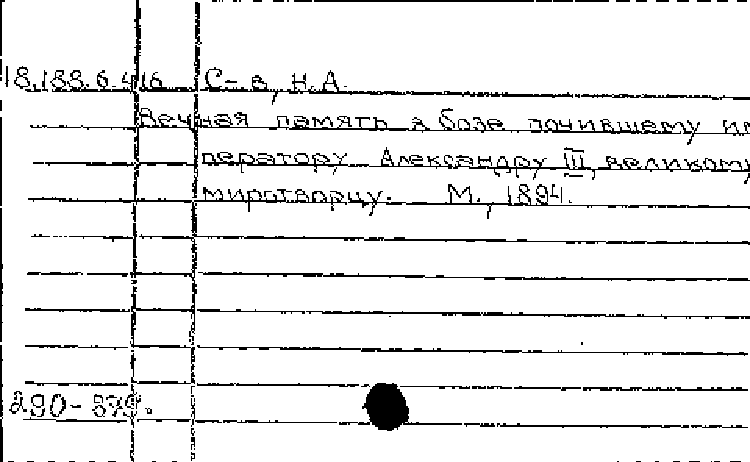 18.188.6.416 С-в, Н.А.
Вечная память в бозе почившему им
ператору Александру III, великому
миротворцу. М., 1894.